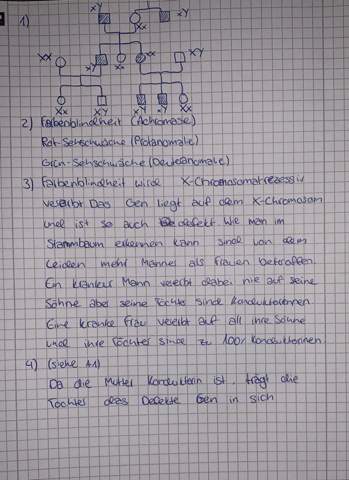 1)
xY xY
Xx
XX xY Xx xx XY
Xx XY xY xY Xx
2) Farbenblindheit (Achromasie)
Rot-Sehschwäche (Protanomalie)
Grün-Sehschwäche (Deuteranomalie)
3) Farbenblindheit wird X-Chromosomal rezessiv
vererbt. Das Gen liegt auf dem X-Chromosom
und ist so auch defekt. Wie man im
Stammbaum erkennen kann sind von dem
Leiden mehr Männer als Frauen betroffen.
Ein kranker Mann vererbt dabei nie auf seine
Söhne aber seine Töchter sind Konduktorinnen.
Eine kranke Frau vererbt auf all ihre Söhne
und ihre Töchter sind zu 100% Konduktorinnen.
4) (siehe A1)
Da die Mutter Konduktorin ist, trägt die
Tochter das Defekte Gen in sich